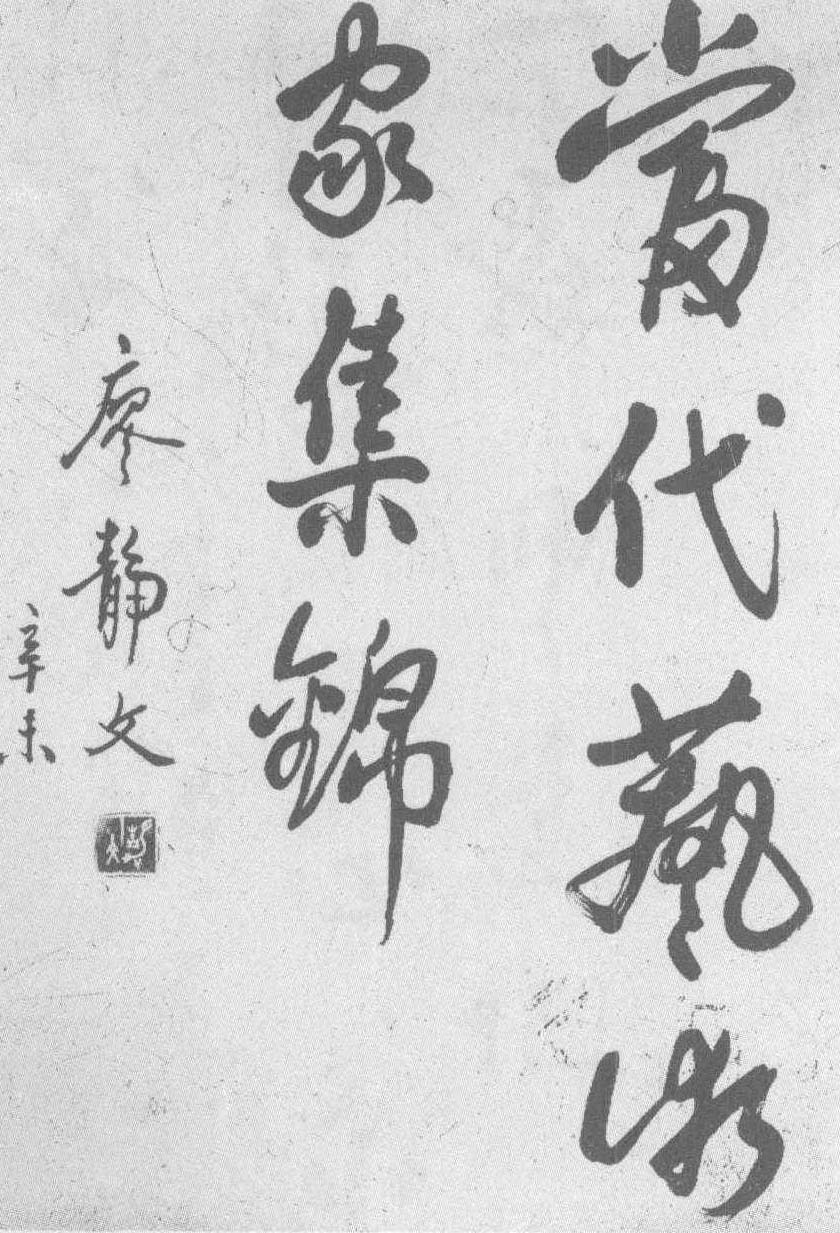 當代藝術
家集錦
廖靜文
辛未